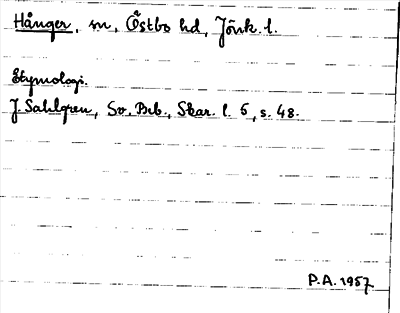 Hånger, sn, Östbo hd, Jönk. l.
Etymologi.
J. Sahlgren, Sv. Beb., Skar. l. 5, s. 48.
P.A. 1957